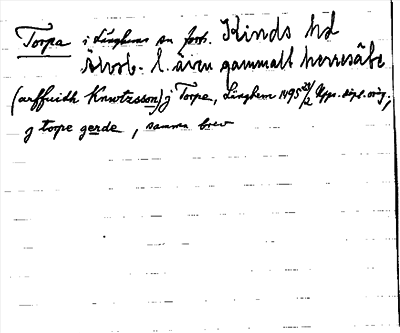 Torpa i Länghems sn förb. Kinds hd
Älvsb. l. även gammalt herresäte
(arffuidh Knwtzsson) j Torpe, Linghem 1495 24/2 Upps. dipl. orig.;
j torpe gerde, samma brev